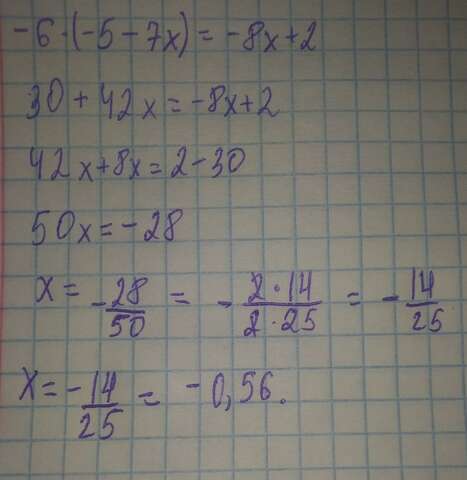 -6·(-5-7x)=-8x+2
30+42x=-8x+2
42x+8x=2-30
50x=-28
x=-28/50=-2·14/2·25=-14/25
x=-14/25=-0,56.